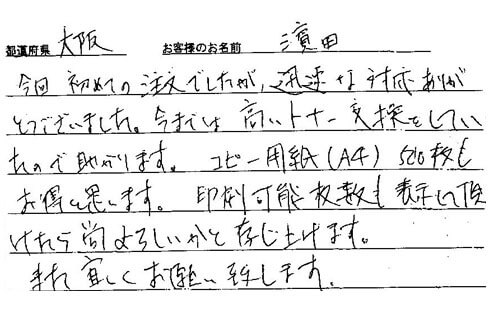 都道府県 大阪 お客様のお名前 濱田
今回 初めての注文でしたが、迅速な対応ありが
とうございました。今までは高いトナー交換をしてい
たので助かります。コピー用紙(A4)500枚も
お得と思います。印刷可能枚数も表示して頂
けたら尚よろしいかと存じ上げます。
また宜しくお願い致します。